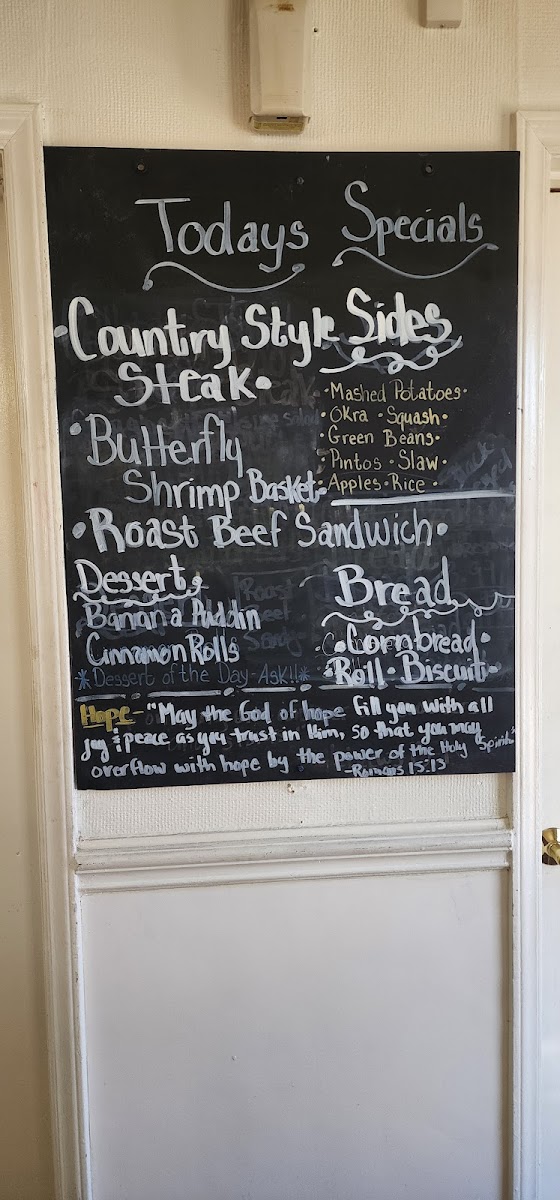 Todays Specials
• Country Style
Steak •
• Butterfly
Shrimp Basket •
• Roast Beef Sandwich •
Sides
• Mashed Potatoes •
• Okra • Squash •
• Green Beans •
• Pintos • Slaw •
• Apples • Rice •
Dessert
Banana Puddin
Cinnamon Rolls
*Dessert of the Day - Ask!!*
Bread
• Cornbread •
• Roll • Biscuit •
Hope - "May the God of hope fill you with all
joy & peace as you trust in Him, so that you may
overflow with hope by the power of the Holy Spirit."
- Romans 15:13